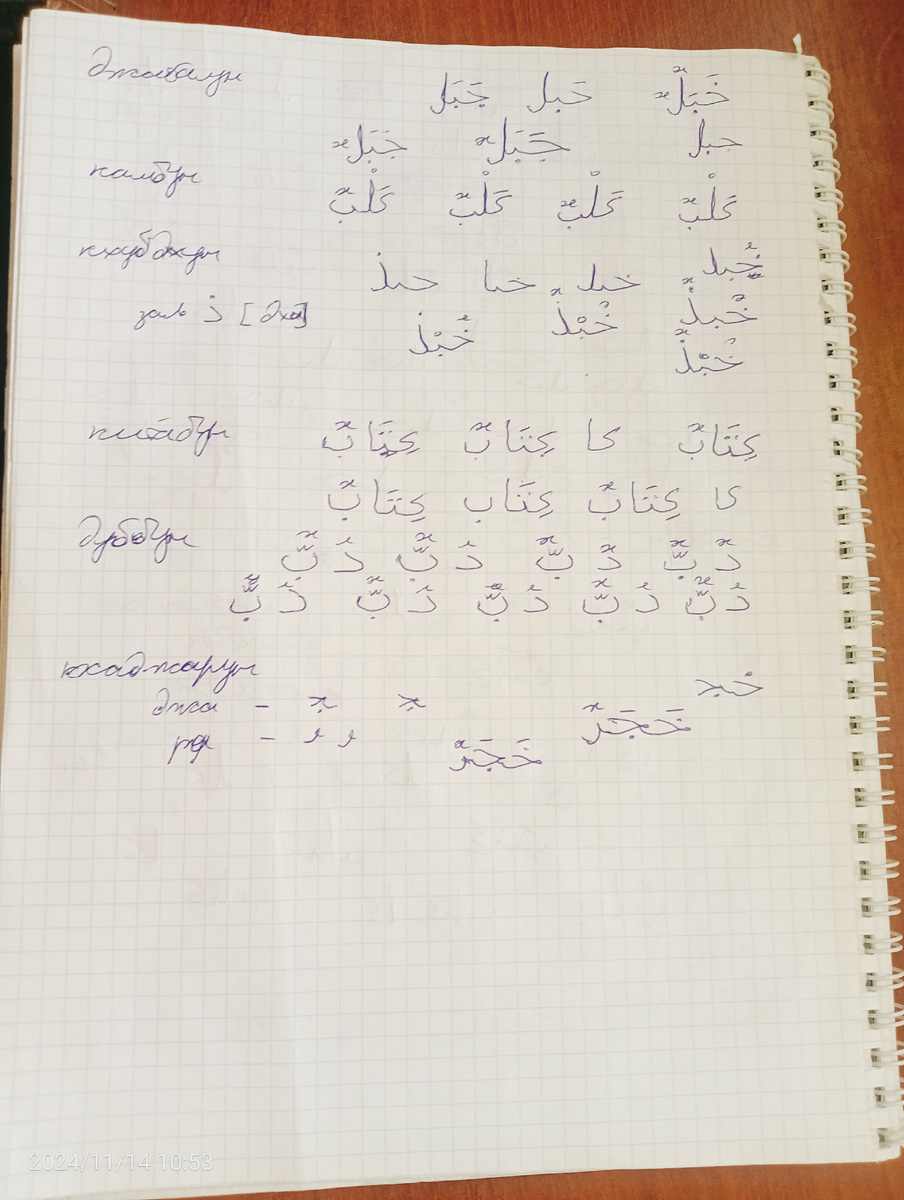 джабалун خَبَلٌ حبل جَبَل
حبل جَبَلٌ جَبَلٌ
калбун كَلْبٌ كَلْبٌ كَلْبٌ كَلْبٌ
кхубдхун خُبل خبل خبا حبذ
заль ذ [дха] خُبذٌ خُبْذٌ خُبْذ
خُبْذٌ
китабун كِتَابٌ كا كِتَابٌ كِتَابٌ
كا كِتَابٌ كِتَاب كِتَابٌ
дуббун دُبٌّ دُبٌّ دُبٌّ دُبٌّ
دُبٌّ دُبٌّ دُبٌّ دُبٌّ دُبٌّ
кхаджарун
джа - ج ج خج
ра - ر ر خَجَرٌ
خَجَرٌ
2024/11/14 10:53